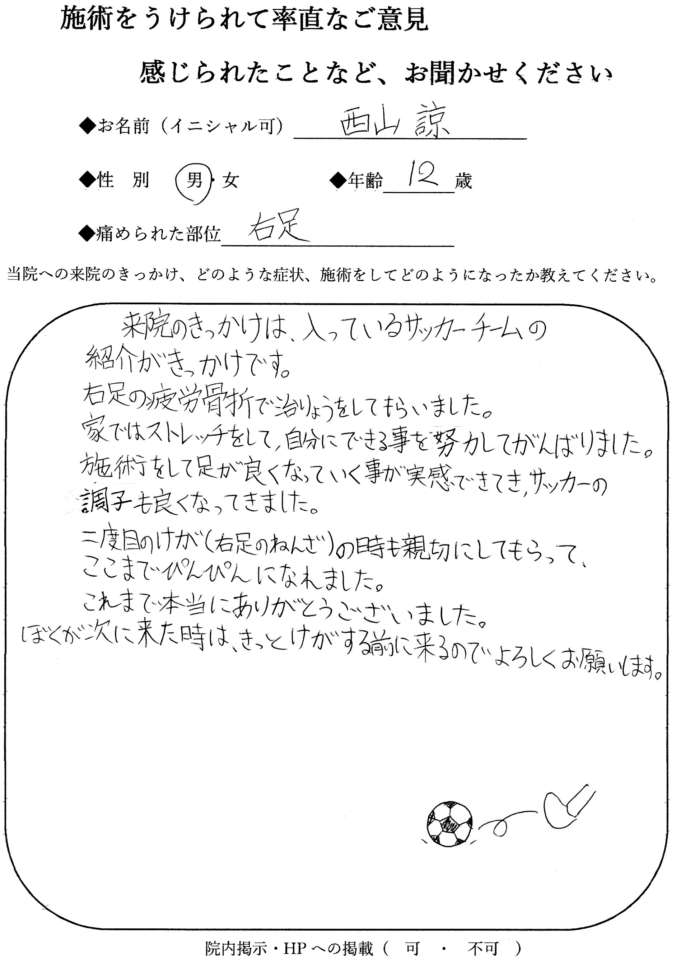 施術をうけられて率直なご意見
感じられたことなど、お聞かせください
◆お名前（イニシャル可） 西山 諒
◆性 別 男・女 ◆年齢 12 歳
◆痛められた部位 右足
当院への来院のきっかけ、どのような症状、施術をしてどのようになったか教えてください。
来院のきっかけは、入っているサッカーチームの
紹介がきっかけです。
右足の疲労骨折で治りょうをしてもらいました。
家ではストレッチをして,自分にできる事を努力してがんばりました。
施術をして足が良くなっていく事が実感できてき,サッカーの
調子も良くなってきました。
二度目のけが(右足のねんざ)の時も親切にしてもらって、
ここまでぴんぴんになれました。
これまで本当にありがとうございました。
ぼくが次に来た時は、きっとけがする前に来るのでよろしくお願いします。
院内掲示・HPへの掲載（ 可 ・ 不可 ）